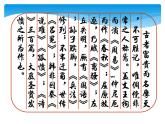 古者富贵而名摩
灭,不可胜记,唯倜傥非
常之人称焉。盖文王拘
而演《周易》;仲尼厄
而作《春秋》;屈原放
逐,乃赋《离骚》;左丘
失明,厥有《国语》;
孙子膑脚,《兵法》
修列;不韦迁蜀,世传
《吕览》;韩非囚秦,
《说难》《孤愤》;《诗》
三百篇,大底圣贤发
愤之所为作也。